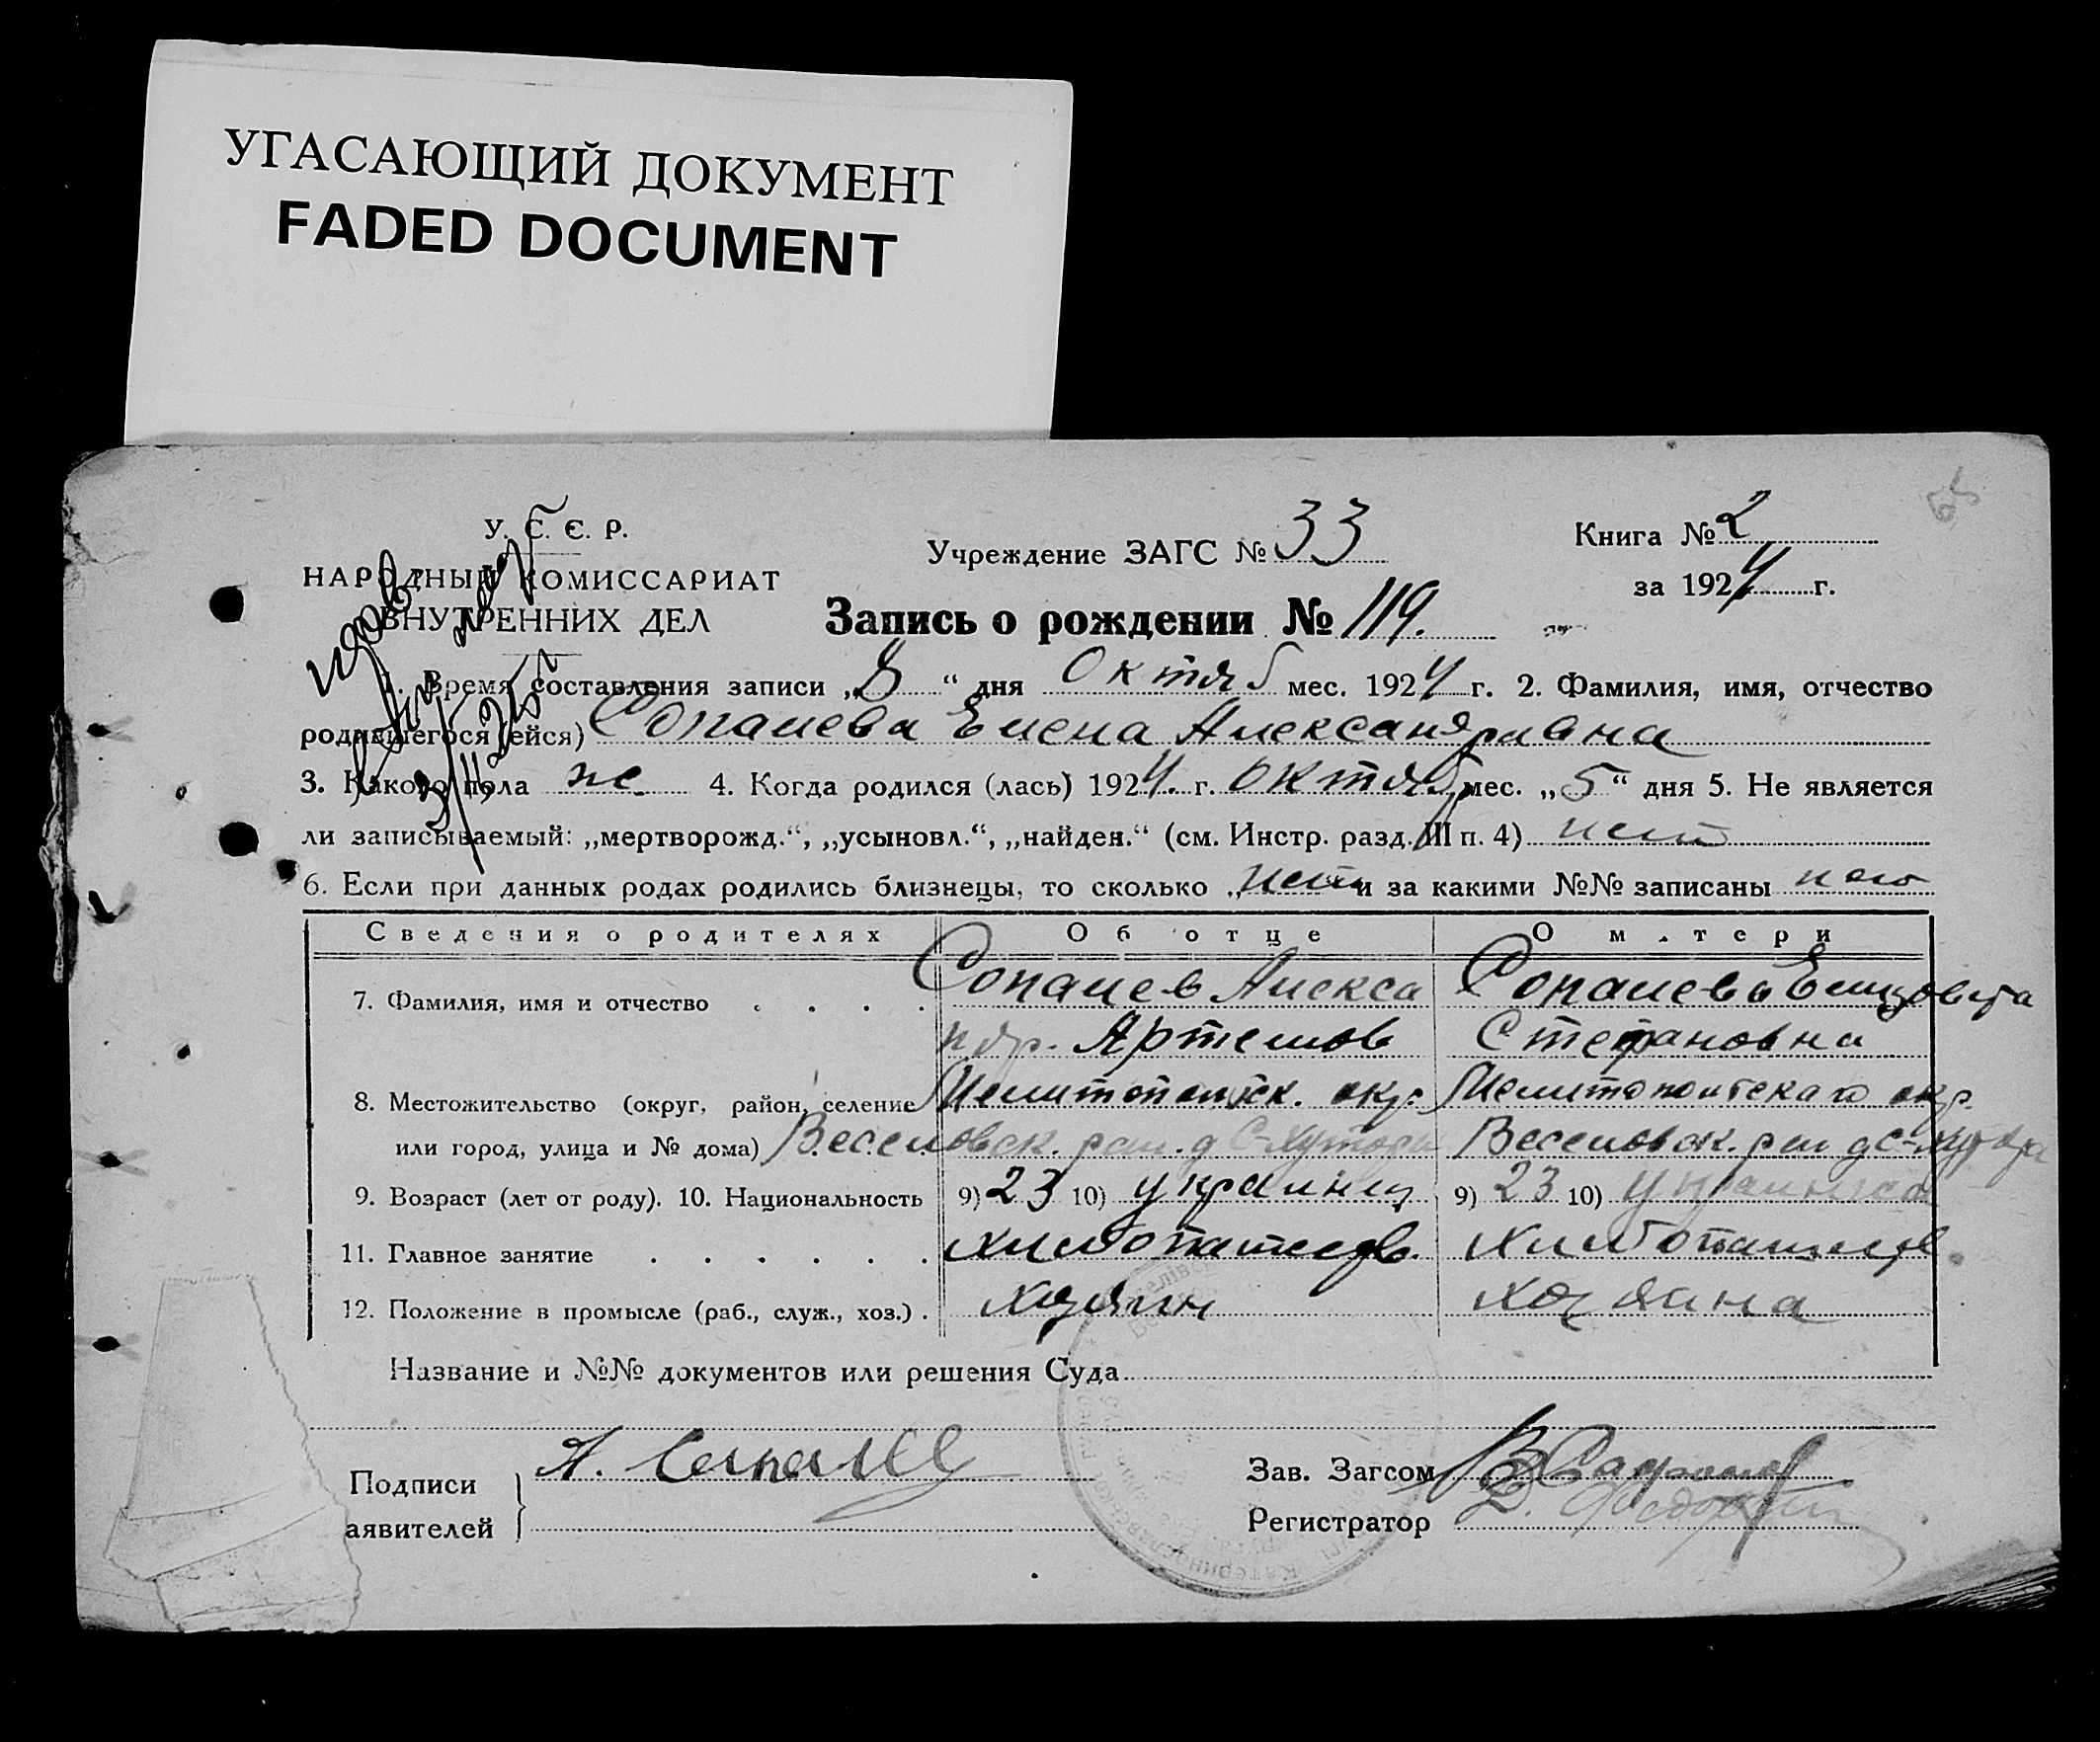 УГАСАЮЩИЙ ДОКУМЕНТ
FADED DOCUMENT
У. С. Є. Р.
НАРОДНЫЙ КОМИССАРИАТ
ВНУТРЕННИХ ДЕЛ
Учреждение ЗАГС № 33
Книга № 2
за 1924 г.
Запись о рождении № 119.
1. Время составления записи „8“ дня Октяб мес. 1924 г. 2. Фамилия, имя, отчество
родившегося (ейся) Сопалева Елена Александравна
3. Какого пола же. 4. Когда родился (лась) 1924. г. октяб мес. „5“ дня 5. Не является
ли записываемый: „мертворожд.“, „усыновл.“, „найден.“ (см. Инстр. разд. III п. 4) нет
6. Если при данных родах родились близнецы, то сколько „нет и за какими №№ записаны нет
Сведения о родителях Об отце О матери
7. Фамилия, имя и отчество Сопалев Алекса Сопалева Елизовета
ндр. Артемов Стефановна
8. Местожительство (округ, район, селение Мелитопольск. окр. Мелитопольскаго окр.
или город, улица и № дома) Веселовск. раи. д С-Хутора Веселовск. раи д С-хутора
9. Возраст (лет от роду). 10. Национальность 9) 23 10) украинец 9) 23 10) украинка
11. Главное занятие хлебопашедв. хлебопашедв.
12. Положение в промысле (раб., служ., хоз.) . хозяин хозяина
Название и №№ документов или решения Суда
Подписи А. Сопалев Зав. Загсом
аявителей Регистратор